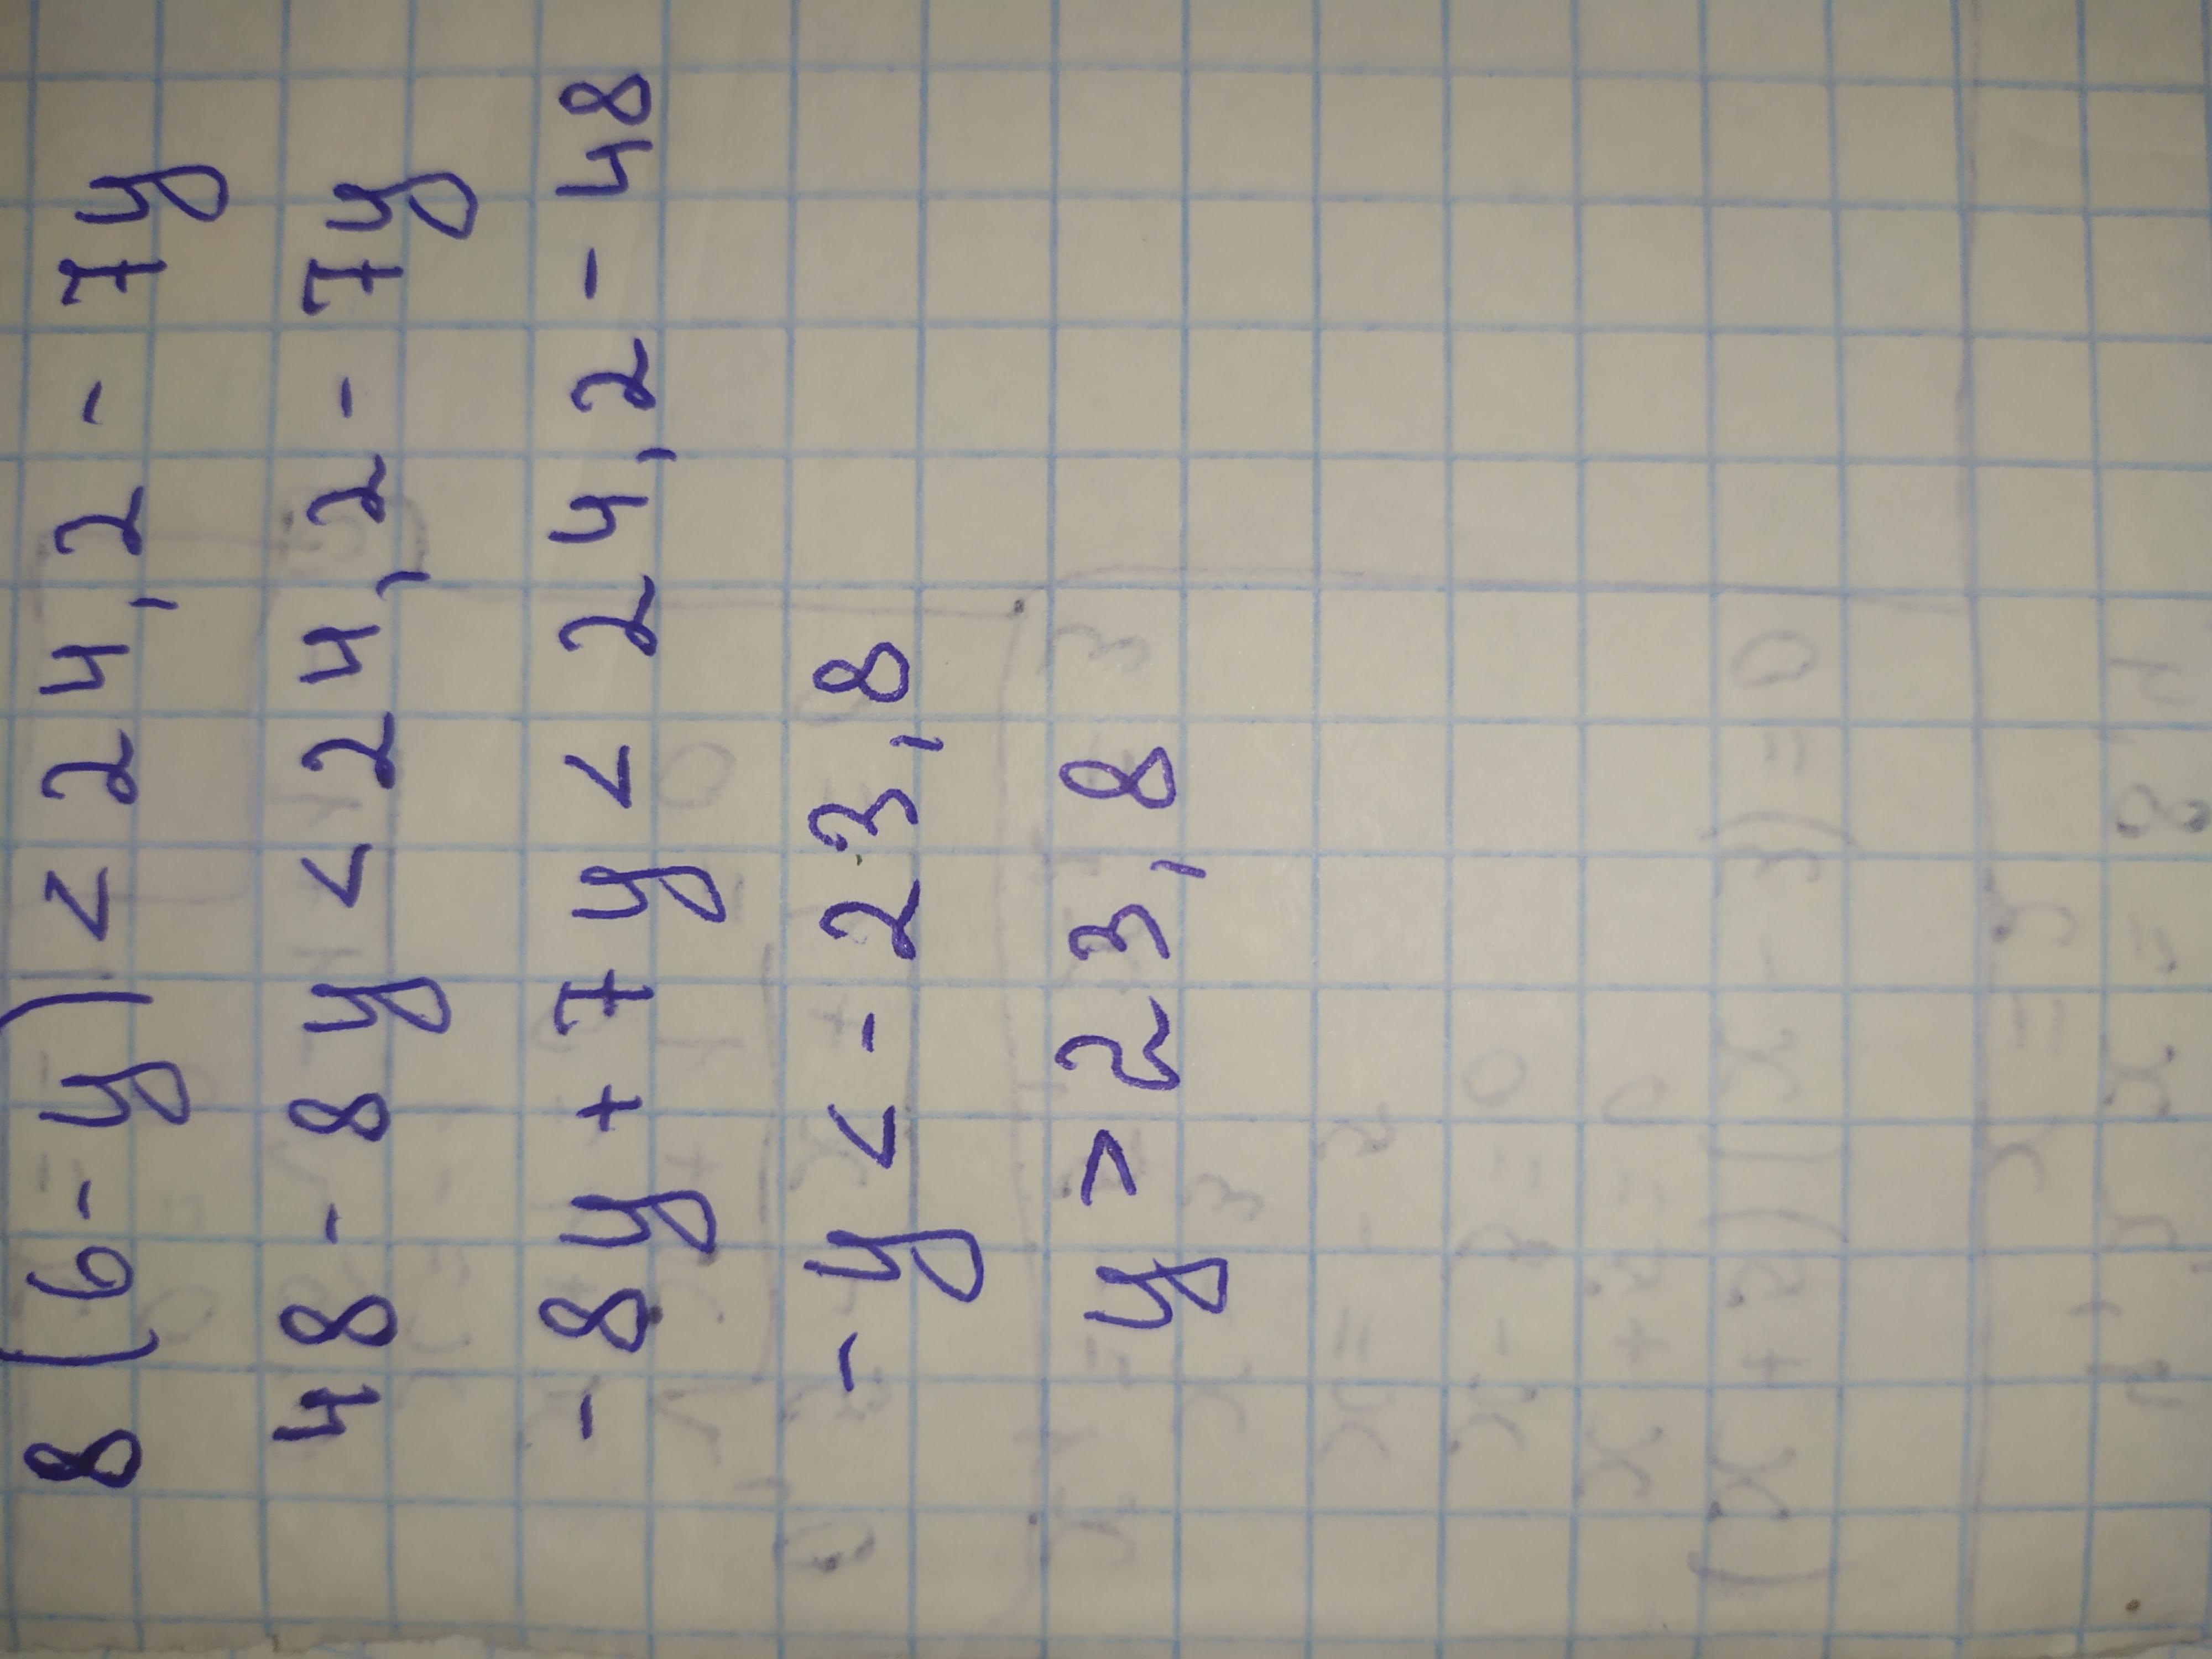 8(6-y)<24,2-7y
48-8y<24,2-7y
-8y+7y<24,2-48
-y<-23,8
y>23,8